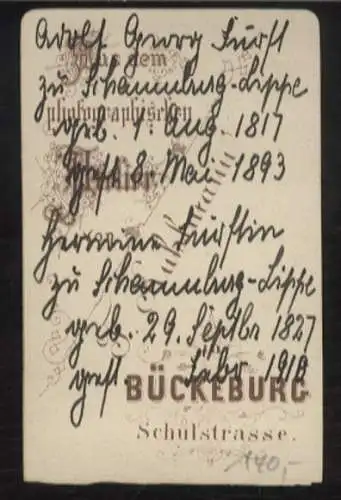 Adolf Georg Fürst
Aus dem
zu Schaumburg-Lippe
photographischen
geb. 1. Aug. 1817
Atelier
gest. 8. Mai 1893
Hermine Fürstin
zu Schaumburg-Lippe
geb. 29. Septbr 1827
gest. Febr 1910
BÜCKEBURG
Schulstrasse.
140,-